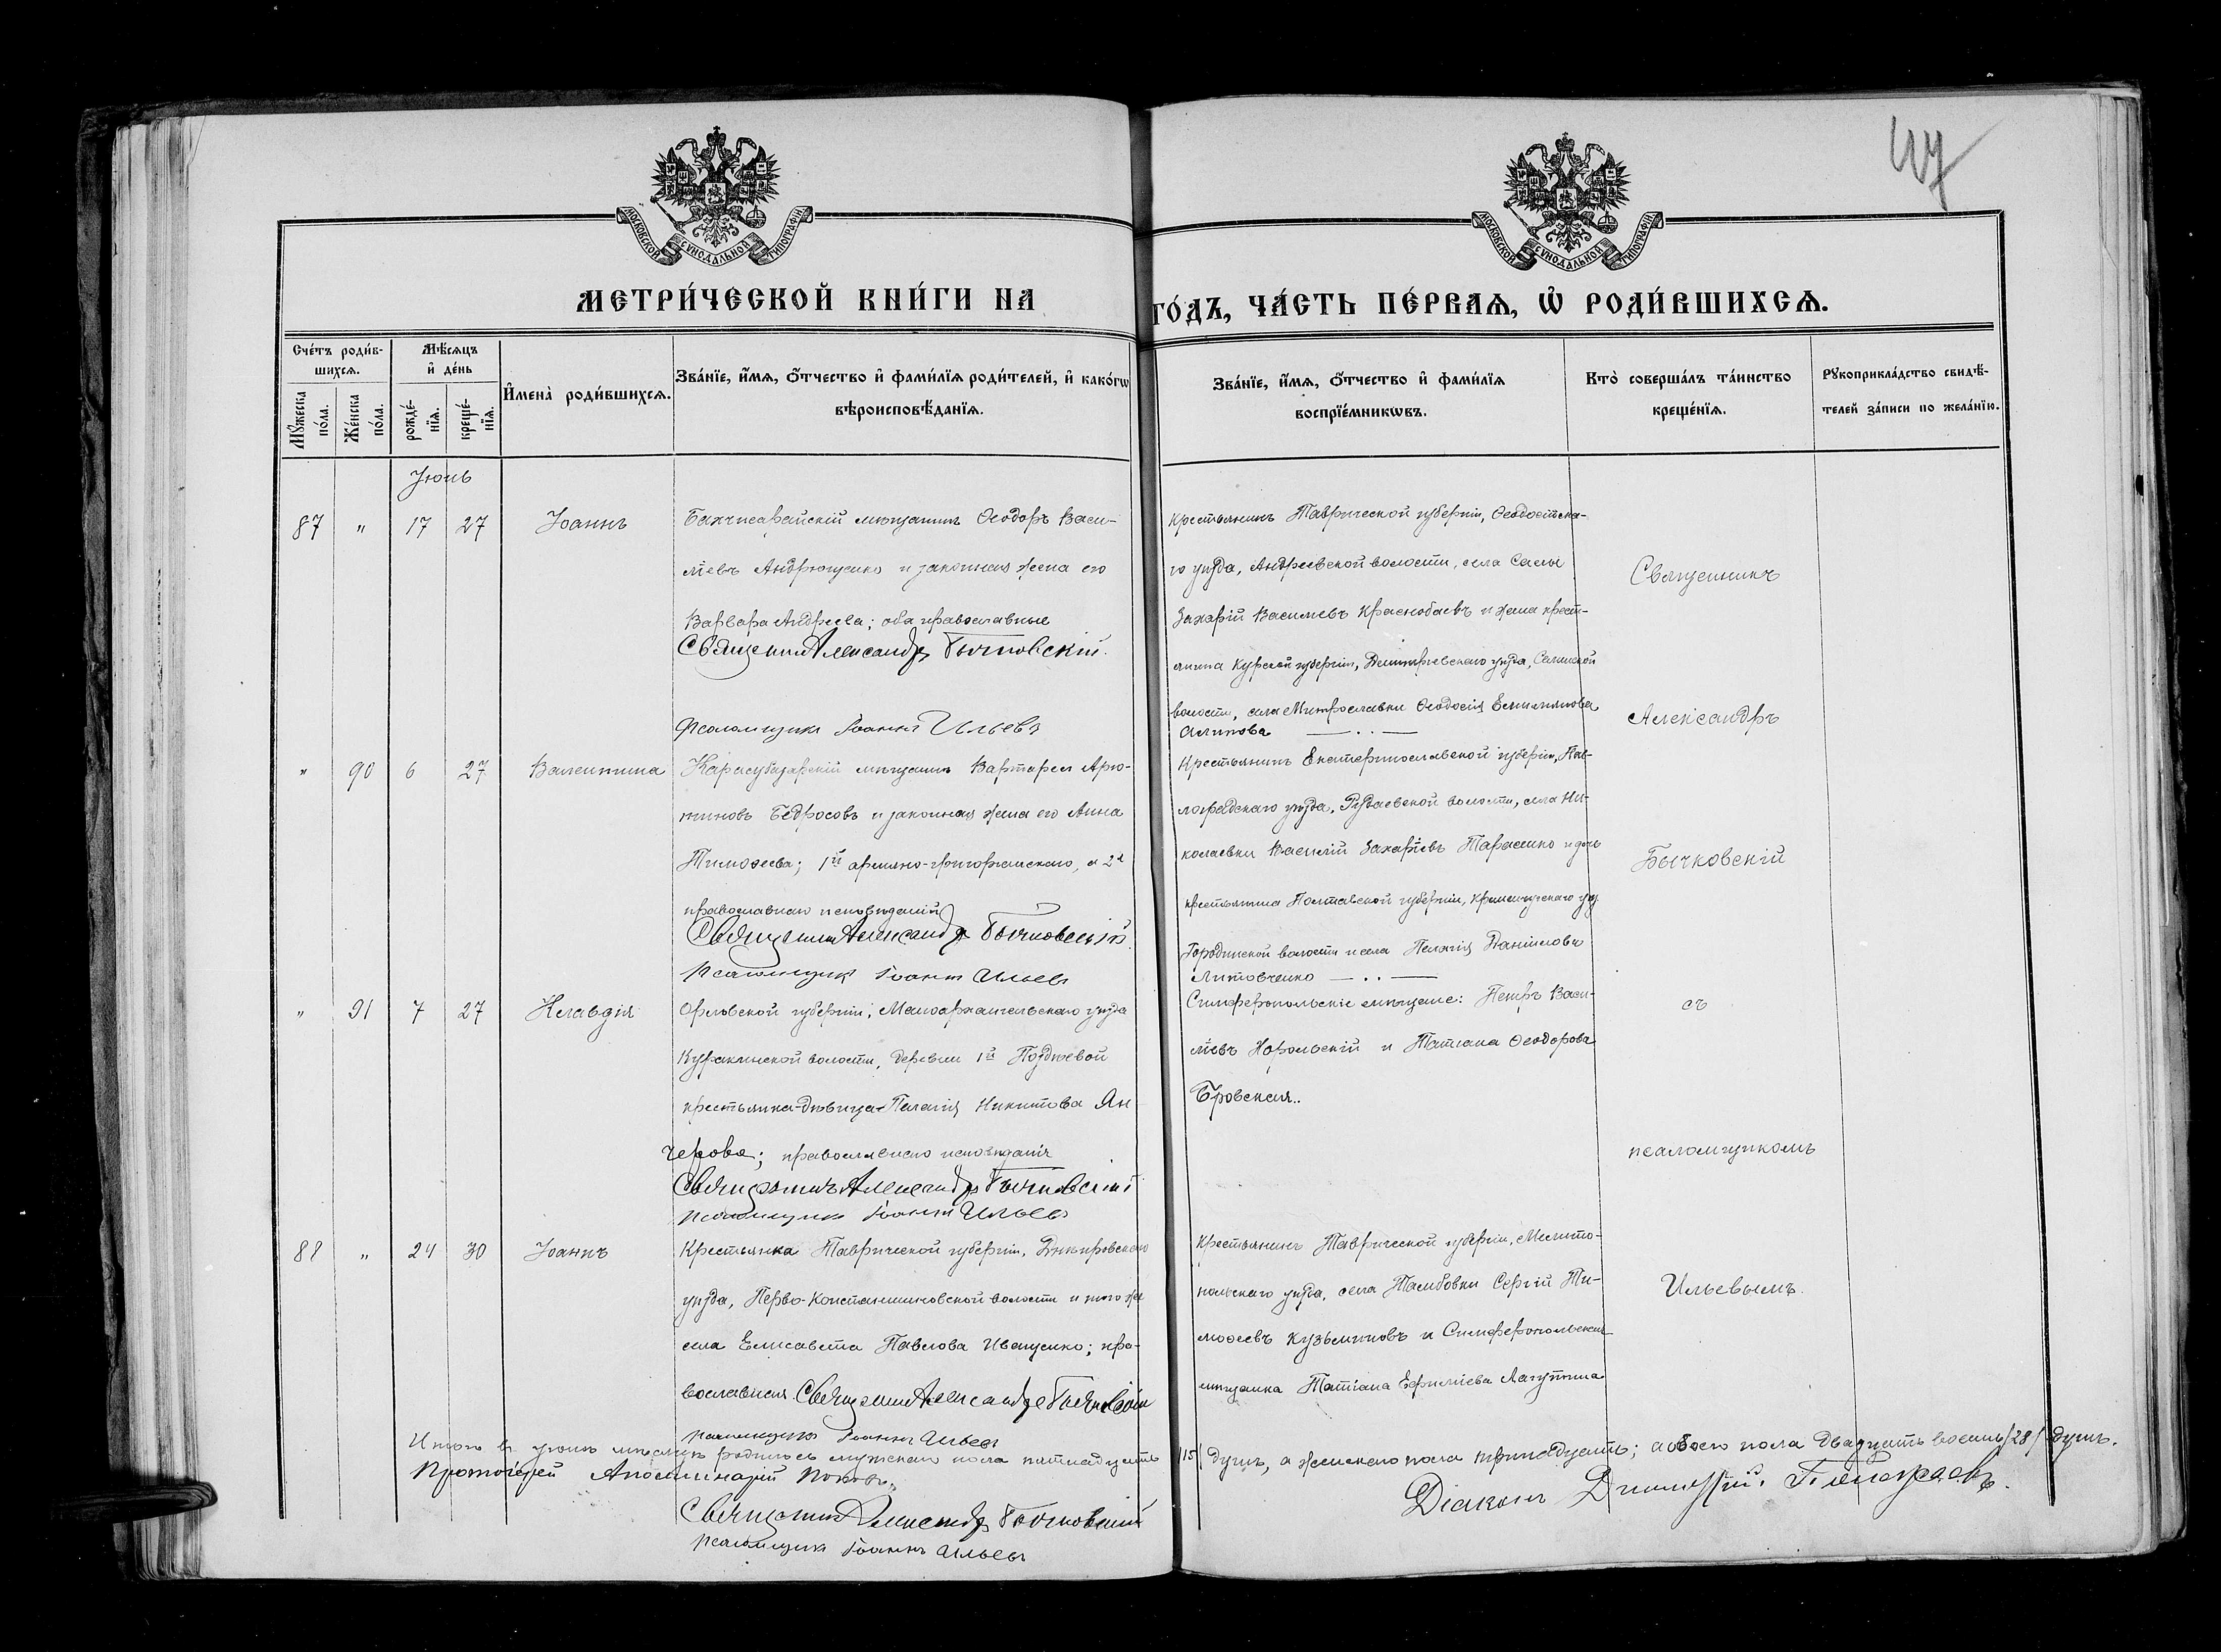 47
МОСКОВСКОЙ СѴНОДАЛЬНОЙ ТИПОГРАФІИ
МОСКОВСКОЙ СѴНОДАЛЬНОЙ ТИПОГРАФІИ
МЕТРИ́ЧЕСКОЙ КНИ́ГИ НА
ГО́ДЪ, ЧА́СТЬ ПЕ́РВАѦ, Ѡ҆ РОДИ́ВШИХСѦ.
Сче́тъ роди́в-
шихсѧ.
Мѣ́сѧцъ
и҆ де́нь
Мꙋ́жеска по́ла.
Же́нска по́ла.
рожде́-
нїѧ.
креще́-
нїѧ.
И҆мена̀ роди́вшихсѧ.
Зва́нїе, и҆́мѧ, ѻ҆́тчество и҆ фами́лїѧ роди́телей, и҆ како́гѡ
вѣроисповѣ́данїѧ.
Зва́нїе, и҆́мѧ, ѻ҆́тчество и҆ фами́лїѧ
воспрїе́мникѡвъ.
Кто̀ соверша́лъ та́инство
креще́нїѧ.
Рꙋкоприкла́дство свидѣ́-
телей за́писи по жела́нїю.
Іюнь
87 " 17 27 Іоаннъ
Бахчисарайскій мѣщанинъ Ѳеодоръ Васи-
ліевъ Андрющенко и законная жена его
Варвара Андреева; оба православные
Священникъ Александръ Бычковскій.
Псаломщикъ Іоаннъ Ильевъ
Крестьянинъ Таврической губерніи, Ѳеодосійска-
го уѣзда, Андреевской волости, села Салы
Захарій Васильевъ Краснобаевъ и жена крест-
янина Курской губерніи, Дмитріевскаго уѣзда,
волости, села Митрославки Ѳеодосія Емельянова
Алипова
" 90 6 27 Валентина
Карасубазарскій мѣщанинъ Вартаресъ Арю-
тиновъ Бедросовъ и законная жена его Анна
Тимоѳеева; 1й армяно-григоріанскаго, а 2я
православнаго исповѣданій
Священникъ Александръ Бычковскій.
Псаломщикъ Іоаннъ Ильевъ
Крестьянинъ Екатеринославской губерніи, Пав-
лоградскаго уѣзда, волости, села Ни-
колаевки Василій Захаріевъ Тарасенко и дочь
крестьянина Полтавской губерніи, Кременчугскаго уѣз.
волости и села Пелагія Даніилова
Литовченко
" 91 7 27 Клавдія
Орловской губерніи, Малоархангельскаго уѣзда
Куракинской волости, деревни 1й Поздѣевой
крестьянка-дѣвица Пелагія Никитова Ян-
черова; православнаго исповѣданія
Священникъ Александръ Бычковскій
псаломщикъ Іоаннъ Ильевъ
Симферопольскіе мѣщане: Петръ Васи-
ліевъ Хорольскій и Татіана Ѳеодорова
Бровская..
88 " 24 30 Іоаннъ
Крестьянка Таврической губерніи, Днѣпровскаго
уѣзда, Перво-Константиновской волости и того же
села Елисавета Павлова Иващенко; пра-
вославная. Священникъ Александръ Бычковскій
псаломщикъ Іоаннъ Ильевъ
Крестьянинъ Таврической губерніи, Мелито-
польскаго уѣзда, села Тамбовки Сергій Ти-
моѳеевъ Кузьминовъ и Симферопольская
мѣщанка Татіана Ефиміева Лагутина
Священникъ
Александръ
Бычковскій
съ
псаломщикомъ
Ильевымъ.
Итого въ іюнѣ мѣсяцѣ родилось мужскаго пола пятнадцать /15/ душъ, а женскаго пола тринадцать; а обоего пола двадцать восемь /28/ душъ.
Протоіерей Аполлинарій Поповъ.
Діаконъ Димитрій
Священникъ Александръ Бычковскій
псаломщикъ Іоаннъ Ильевъ